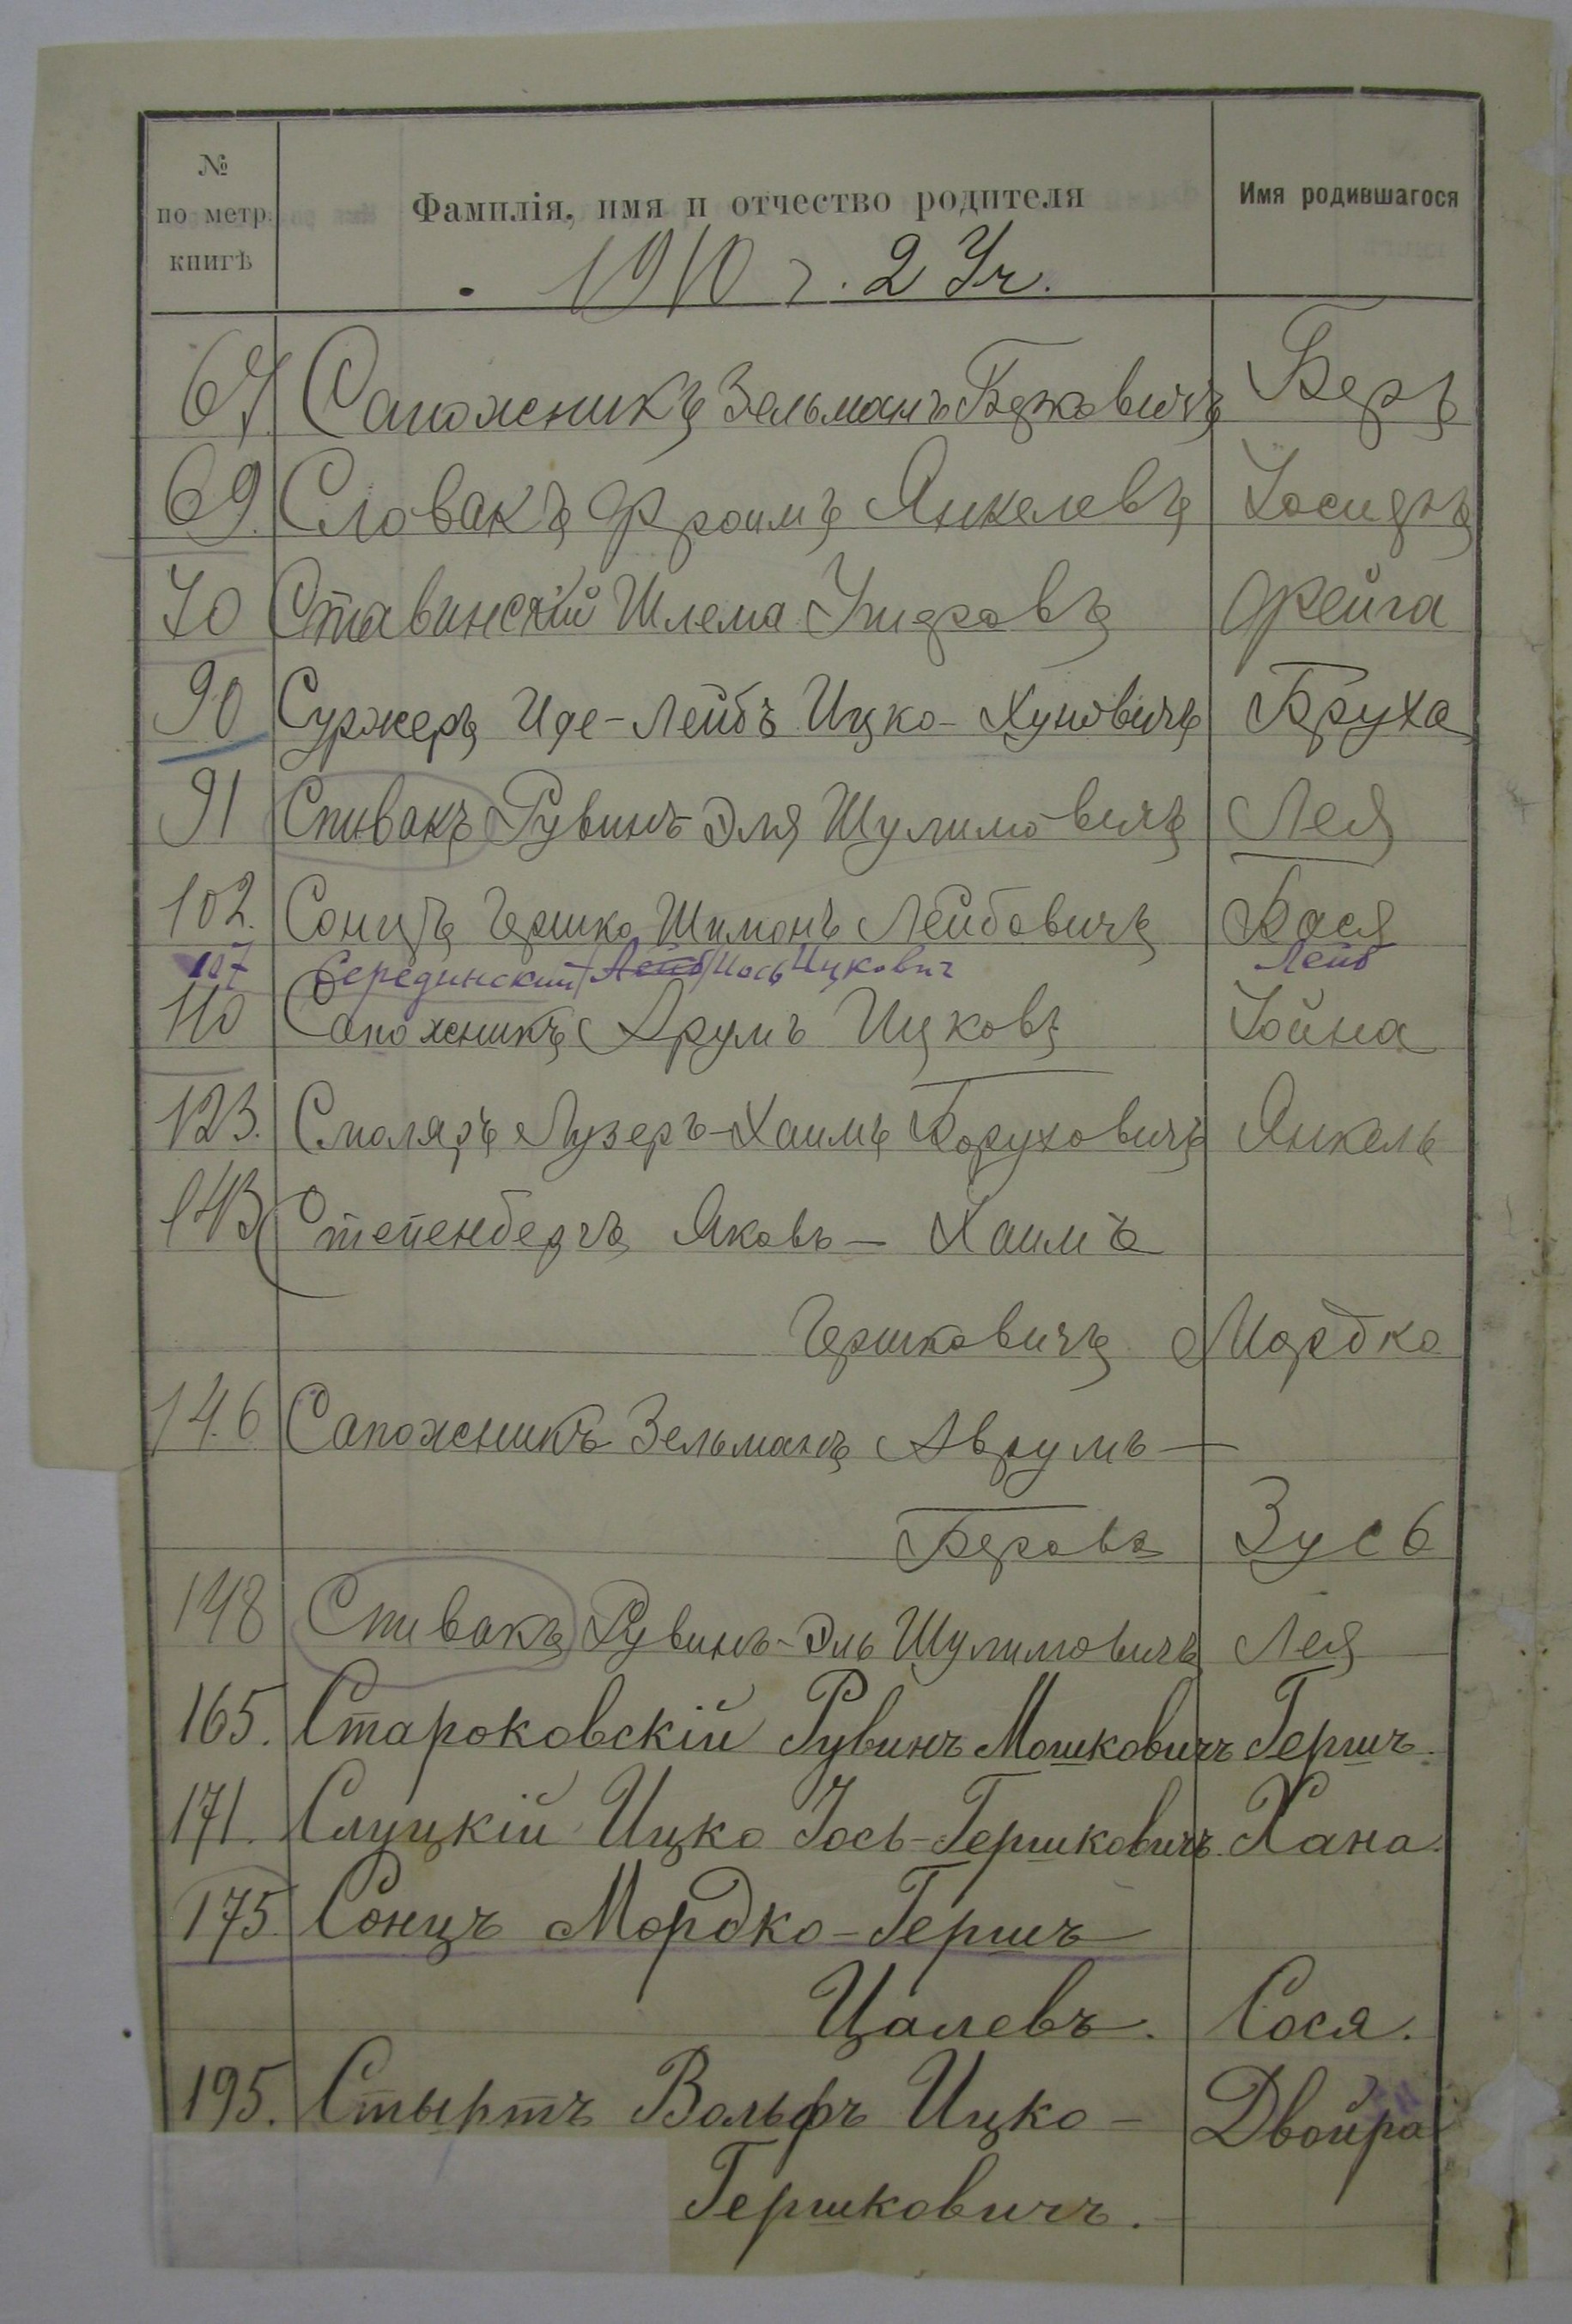 № по метр. книгѣ
Фамилія, имя и отчество родителя
Имя родившагося
1910 г. 2 Уч.
67. Сапожникъ Зельманъ Берковичъ Беръ
69. Словакъ Фроимъ Янкелевъ Іосифъ
70 Ставинскій Шлема Унгеровъ Фейга
90 Суржеръ Иде-Лейбъ Ицко-Хуновичъ Бруха
91 Спивакъ Рувинъ Эля Шулимовичъ Лея
102. Сонцъ Гершко Шимонъ Лейбовичъ Бася
107 Серединский /Лейб/ Иось Ицкович Лейб
110 Сапожникъ Арумъ Ицковъ Іойна
123. Смоляръ Лузеръ-Хаимъ Боруховичъ Янкель
143 Степенбергъ Яковъ — Хаимъ
Гершковичъ Мордко
146 Сапожникъ Зельманъ Аврумъ —
Беровъ Зусь
148 Спивакъ Рувинъ-Эль Шулимовичъ Лея
165. Староковскій Рувинъ Мошковичъ Гершъ.
171. Слуцкій Ицко Іось-Гершковичъ. Хана.
175. Сонцъ Мордко-Гершъ
Цалевъ. Сося.
195. Стыртъ Вольфъ Ицко- Двойра
Гершковичъ.